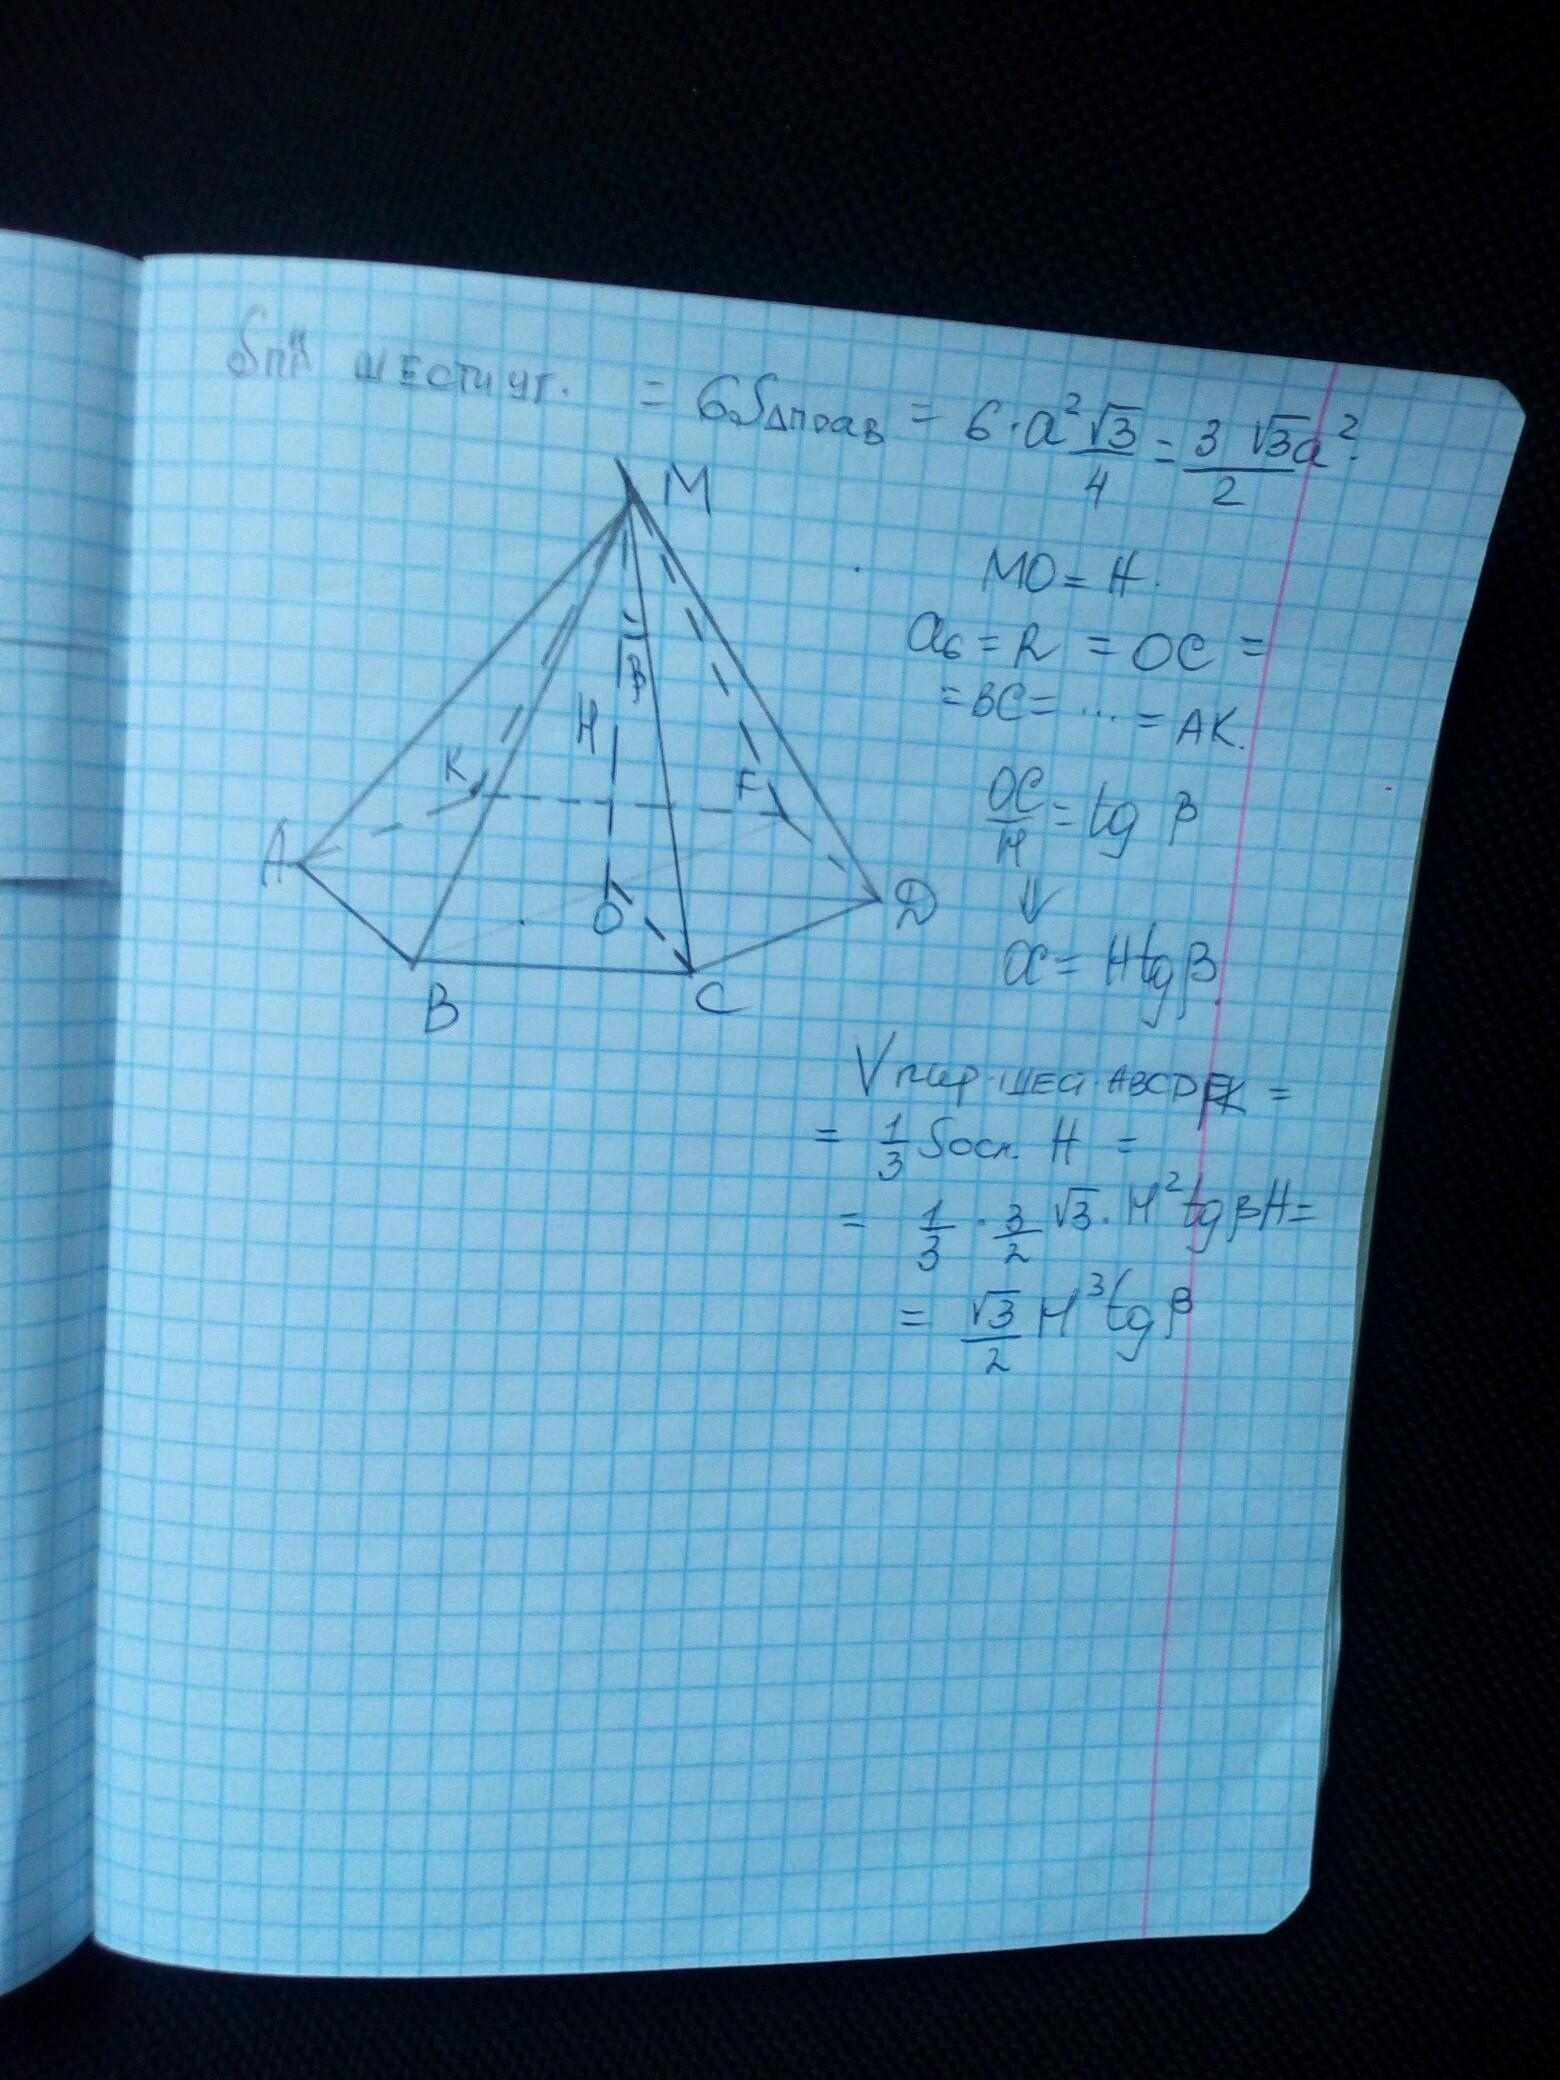 Sпр шестиуг. = 6SΔправ = 6·a²√3/4 = 3√3a²/2.
M
MO = H.
a₆ = R = OC =
= BC = ... = AK.
β
H
K
F
OC/H = tg β
A
O
D
⇓
OC = Htgβ
B
C
Vпир.шест.ABCDFK =
= 1/3 Sосн. H =
= 1/3 · 3/2 √3 · H²tgβH =
= √3/2 H³tgβ